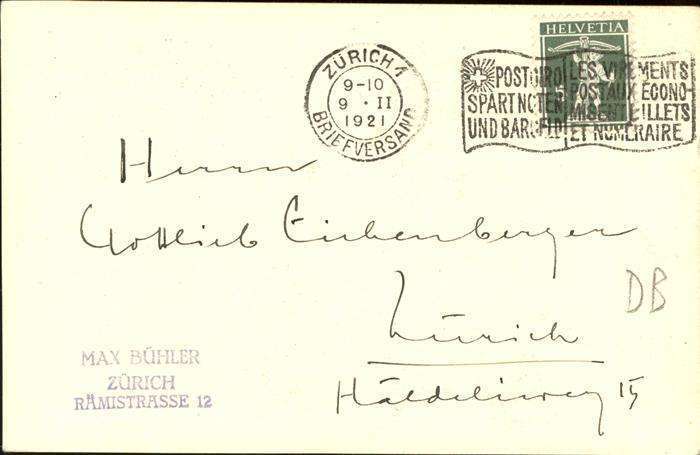 ZÜRICH 1
9-10
9 · II
1921
BRIEFVERSAND
HELVETIA
5
POSTGIRO
SPART NOTEN
UND BARGELD
LES VIREMENTS
POSTAUX ÉCONO-
MISENT BILLETS
ET NUMÉRAIRE
Herrn
Gottlieb Eichenberger
Zürich
15
DB
MAX BÜHLER
ZÜRICH
RÄMISTRASSE 12